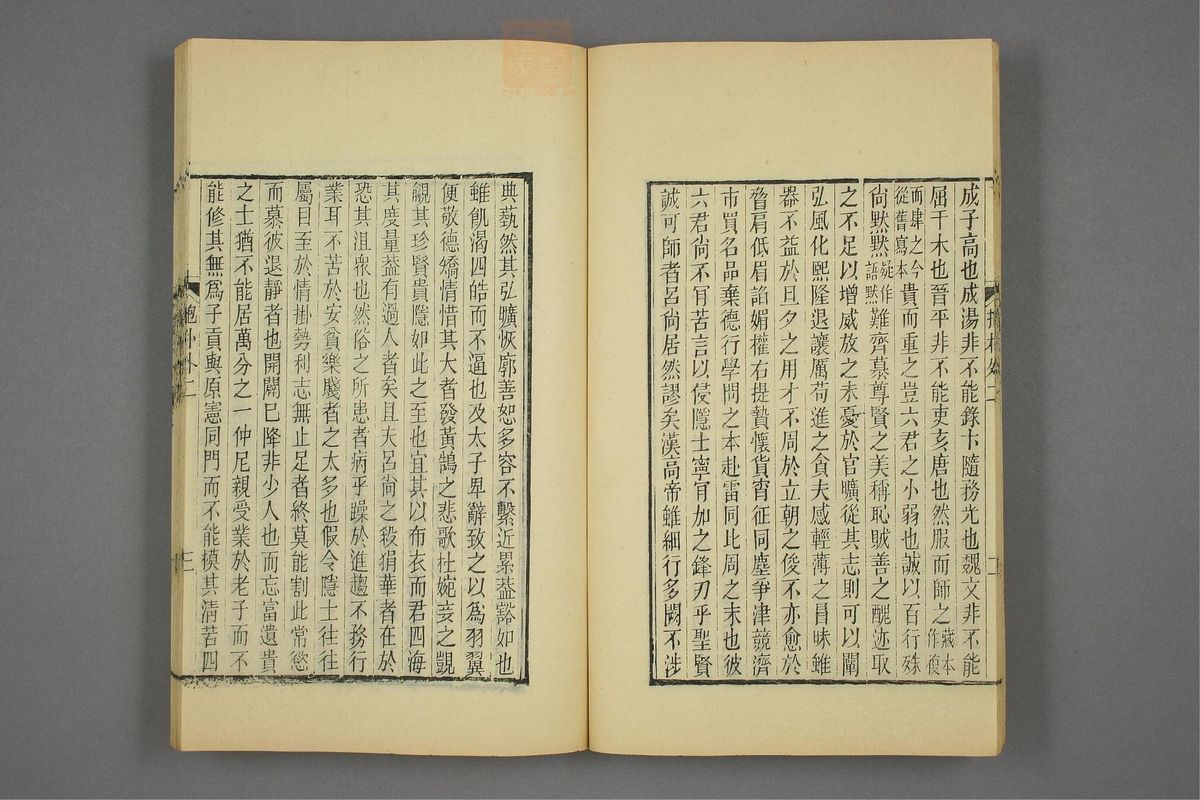 成子高也成湯非不能錄卞隨務光也魏文非不能
屈干木也晉平非不能吏亥唐也然服而師之藏本作復
而肆之今從舊寫本貴而重之豈六君之小弱也誠以百行殊
尙默默疑作語默難齊慕尊賢之美稱恥賊善之醜迹取
之不足以增威放之未憂於官曠從其志則可以闡
弘風化熙隆退讓厲苟進之貪夫感輕薄之冒昧雖
器不益於旦夕之用才不周於立朝之俊不亦愈於
脅肩低眉諂媚權右提贄懷貨宵征同塵爭津競濟
市買名品棄德行學問之本赴雷同比周之末也彼
六君尙不肯苦言以侵隱士寧肯加之鋒刃乎聖賢
誠可師者呂尙居然謬矣漢高帝雖細行多闕不涉
典藝然其弘曠恢廓善恕多容不繫近累葢豁如也
雖飢渴四皓而不逼也及太子卑辭致之以爲羽翼
便敬德矯情惜其大者發黃鵠之悲歌杜婉妾之覬
覦其珍賢貴隱如此之至也宜其以布衣而君四海
其度量葢有過人者矣且夫呂尙之殺狷華者在於
恐其沮衆也然俗之所患者病乎躁於進趨不務行
業耳不苦於安貧樂賤者之太多也假令隱士往往
屬目至於情掛勢利志無止足者終莫能割此常慾
而慕彼退靜者也開闢已降非少人也而忘富遺貴
之士猶不能居萬分之一仲尼親受業於老子而不
能修其無爲子貢與原憲同門而不能模其清苦四
抱朴外二
三